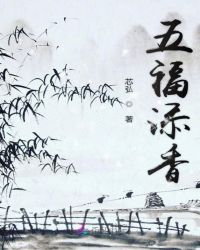 五福添香
芯弘◎著